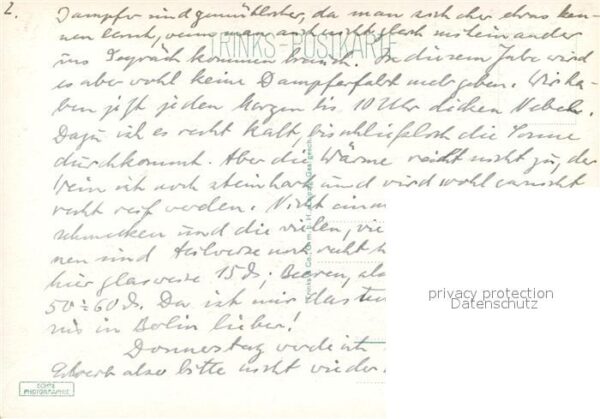 2.
Dampfer sind gemütlicher, da man sich eher etwas ken-
nen lernt, wenn man sich nicht gleich miteinander
TRINKS-POSTKARTE
ins Gespräch kommen braucht. In diesem Jahr wird
es aber wohl keine Dampferfahrt mehr geben. Wir ha-
ben jetzt jeden Morgen bis 10 Uhr dicken Nebel.
Dazu ist es recht kalt, bis schließlich die Sonne
durchkommt. Aber die Wärme reicht nicht zu, der
Wein ist noch steinhart und wird wohl garnicht
recht reif werden. Nicht einm
schmecken und die vielen, vie
nen sind teilweise noch recht
hier glasweise 15 ch; Beeren, al
50-60 ch. Da ist mir das
nis in Berlin lieber!
Donnerstag werde ich
Schreib also bitte nicht wieder
Trinks & Co., G.m.b.H. Leipzig Ges. gesch.
ECHTE
PHOTOGRAPHIE
privacy protection
Datenschutz